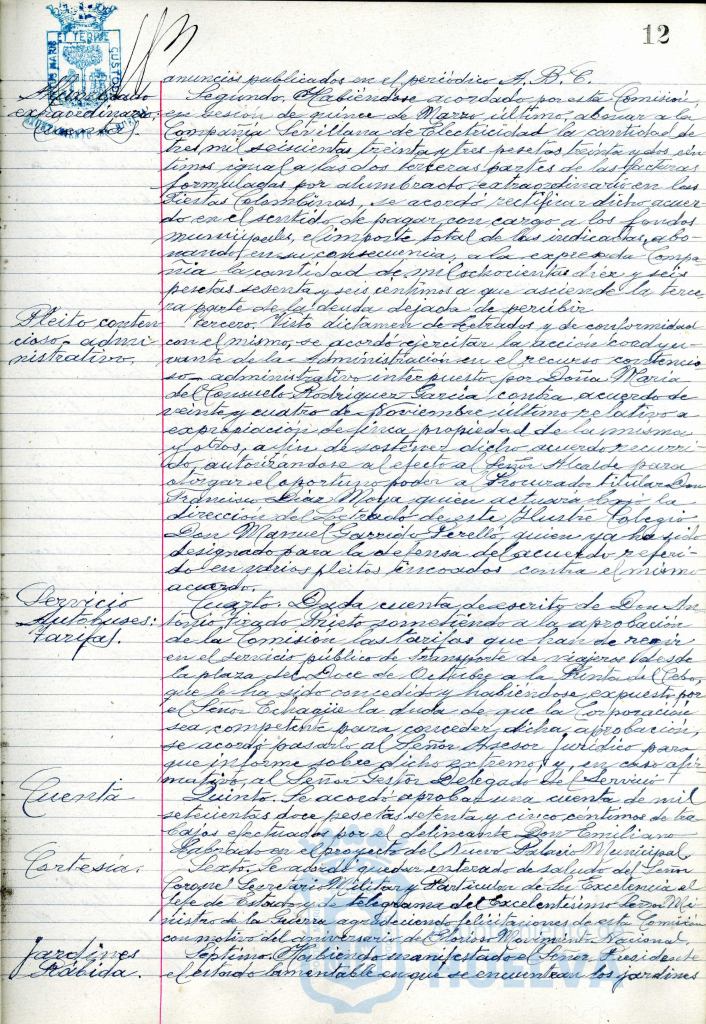 12
anuncios publicados en el periódico A. B. C.
Alumbrado
extraordinario:
Cuenta.
Segundo. Habiéndose acordado por esta Comisión,
en sesión de quince de Marzo último, abonar a la
Compañía Sevillana de Electricidad la cantidad de
tres mil seiscientas treinta y tres pesetas treinta y dos cén
timos igual a las dos terceras partes de las facturas
formuladas por alumbrado extraordinario en las
Fiestas Colombinas, se acordó rectificar dicho acuer
do en el sentido de pagar con cargo a los fondos
municipales, el importe total de las indicadas, abo
nando en su consecuencia, a la expresada Compa
ñía la cantidad de mil ochocientas diez y seis
pesetas sesenta y seis céntimos a que asciende la terce
ra parte de la deuda dejada de percibir
Pleito conten
cioso-admi-
nistrativo.
Tercero. Visto dictamen de Letrados y de conformidad
con el mismo, se acordó ejercitar la acción coadyu-
vante de la Administración en el recurso contencio
so-administrativo interpuesto por Doña María
del Consuelo Rodríguez García contra acuerdo de
veinte y cuatro de Noviembre último relativo a
expropiación de finca propiedad de la misma
y otros, a fin de sostener dicho acuerdo recurri
do, autorizándose al efecto al Señor Alcalde para
otorgar el oportuno poder al Procurador titular Don
Francisco Díaz Moya quien actuará bajo la
dirección del Letrado de este Ilustre Colegio
Don Manuel Garrido Perelló, quien ya ha sido
designado para la defensa del acuerdo referi
do en varios pleitos incoados contra el mismo
acuerdo.
Servicio
Autobuses:
tarifas.
Cuarto. Dada cuenta de escrito de Don An
tonio Tirado Prieto sometiendo a la aprobación
de la Comisión las tarifas que han de regir
en el servicio público de transporte de viajeros desde
la plaza del Doce de Octubre a la Punta del Sebo,
que le ha sido concedido y habiéndose expuesto por
el Señor Echagüe la duda de que la Corporación
sea competente para conceder dicha aprobación,
se acordó pasarlo al Señor Asesor Jurídico para
que informe sobre dicho extremo y, en caso afir
mativo, al Señor Gestor Delegado del Servici-
Cuenta
Quinto. Se acordó aprobar una cuenta de mil
setecientas doce pesetas setenta y cinco céntimos de tra
bajos efectuados por el delineante Don Emiliano
Labrado en el proyecto del Nuevo Palacio Municipal.
Cortesía.
Sexto. Se acordó quedar enterado de saluda del Señor
Coronel Secretario Militar y Particular de Su Excelencia el
Jefe de Estado y de telegrama del Excelentísimo Señor Mi
nistro de la Guerra agradeciendo felicitaciones de esta Comisión
con motivo del aniversario del Glorioso Movimiento Nacional.
Jardines
Rábida.
Séptimo. Habiendo manifestado el Señor Presidente
el estado lamentable en que se encuentran los jardines
Ayuntamiento de
HUELVA